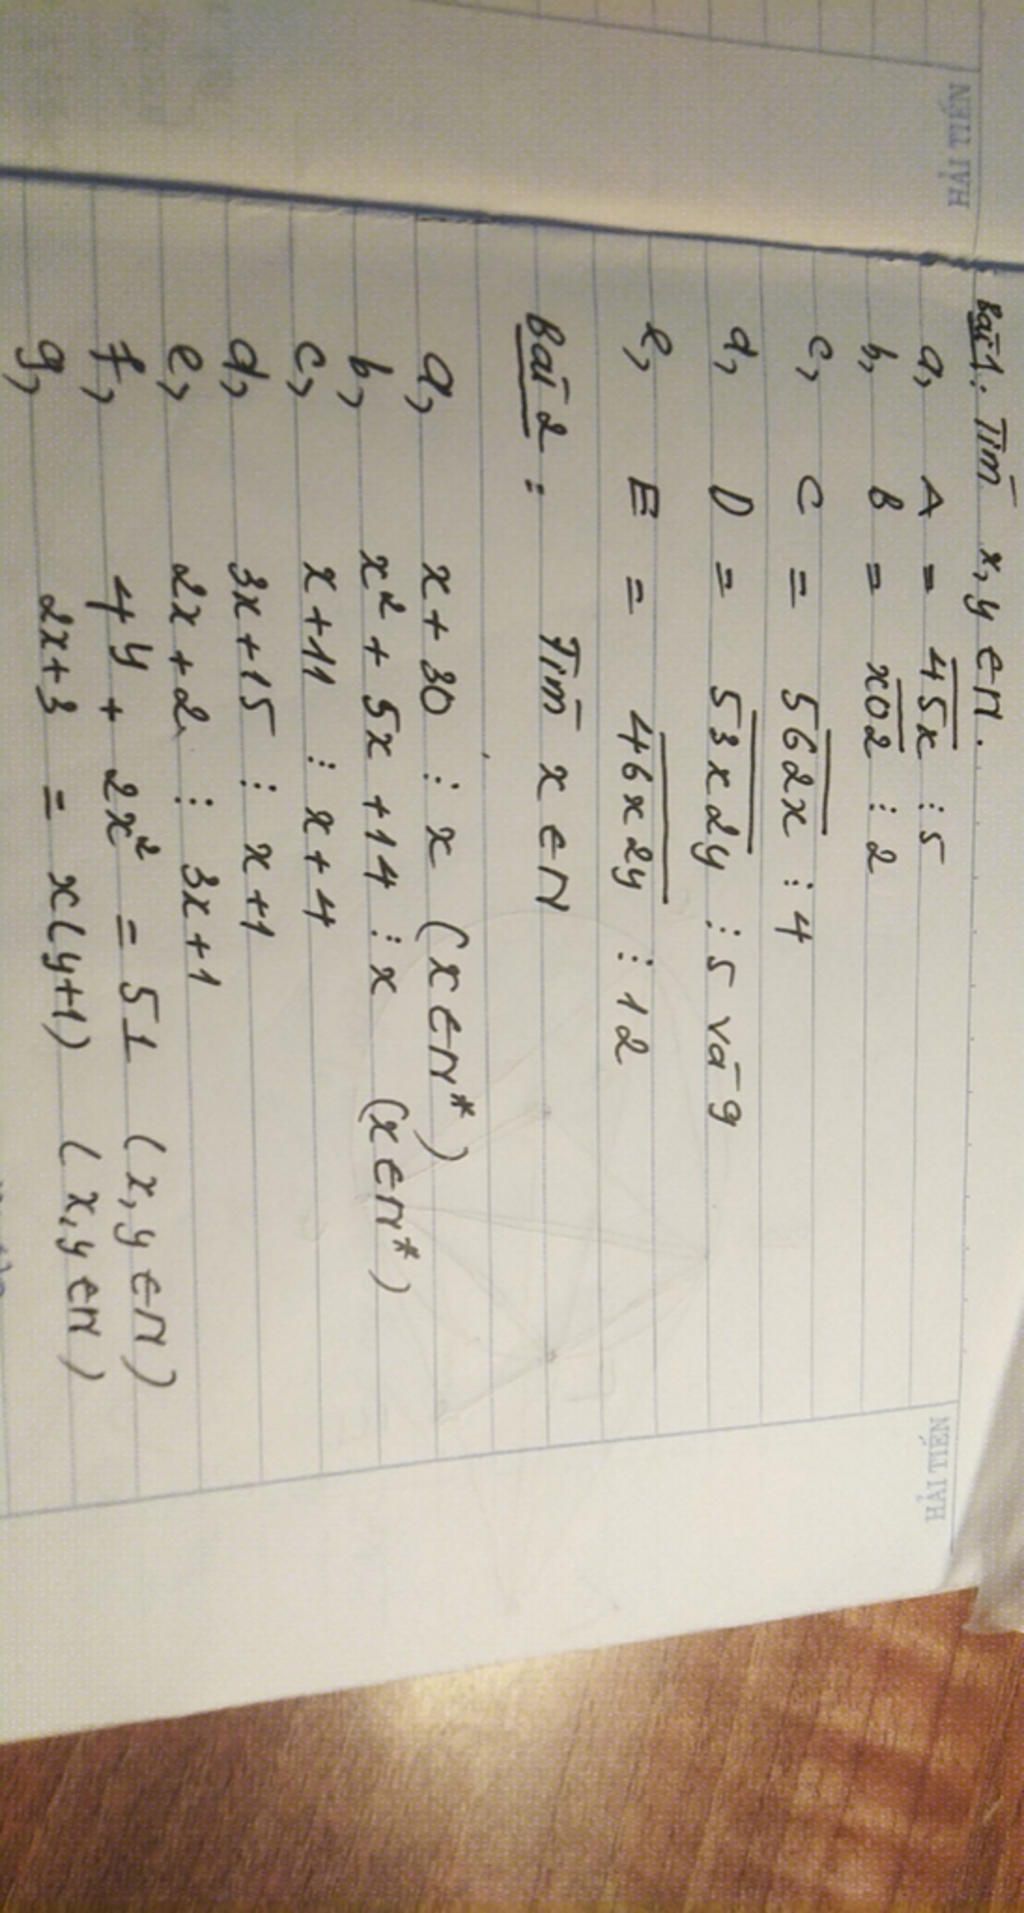 HẢI TIẾN
Bài 1: Tìm x, y ∈ N.
a, A = \overline{45x} ⋮ 5
b, B = \overline{x02} ⋮ 2
c, C = \overline{562x} ⋮ 4
d, D = \overline{53x2y} ⋮ 5 và 9
e, E = \overline{46x2y} ⋮ 12
Bài 2: Tìm x ∈ N
a, x + 30 ⋮ x (x ∈ N*)
b, x² + 5x + 14 ⋮ x (x ∈ N*)
c, x + 11 ⋮ x + 4
d, 3x + 15 ⋮ x + 1
e, 2x + 2 ⋮ 3x + 1
f, 4y + 2x² = 51 (x, y ∈ N)
g, 2x + 3 = x(y+1) (x, y ∈ N)
HẢI TIẾN